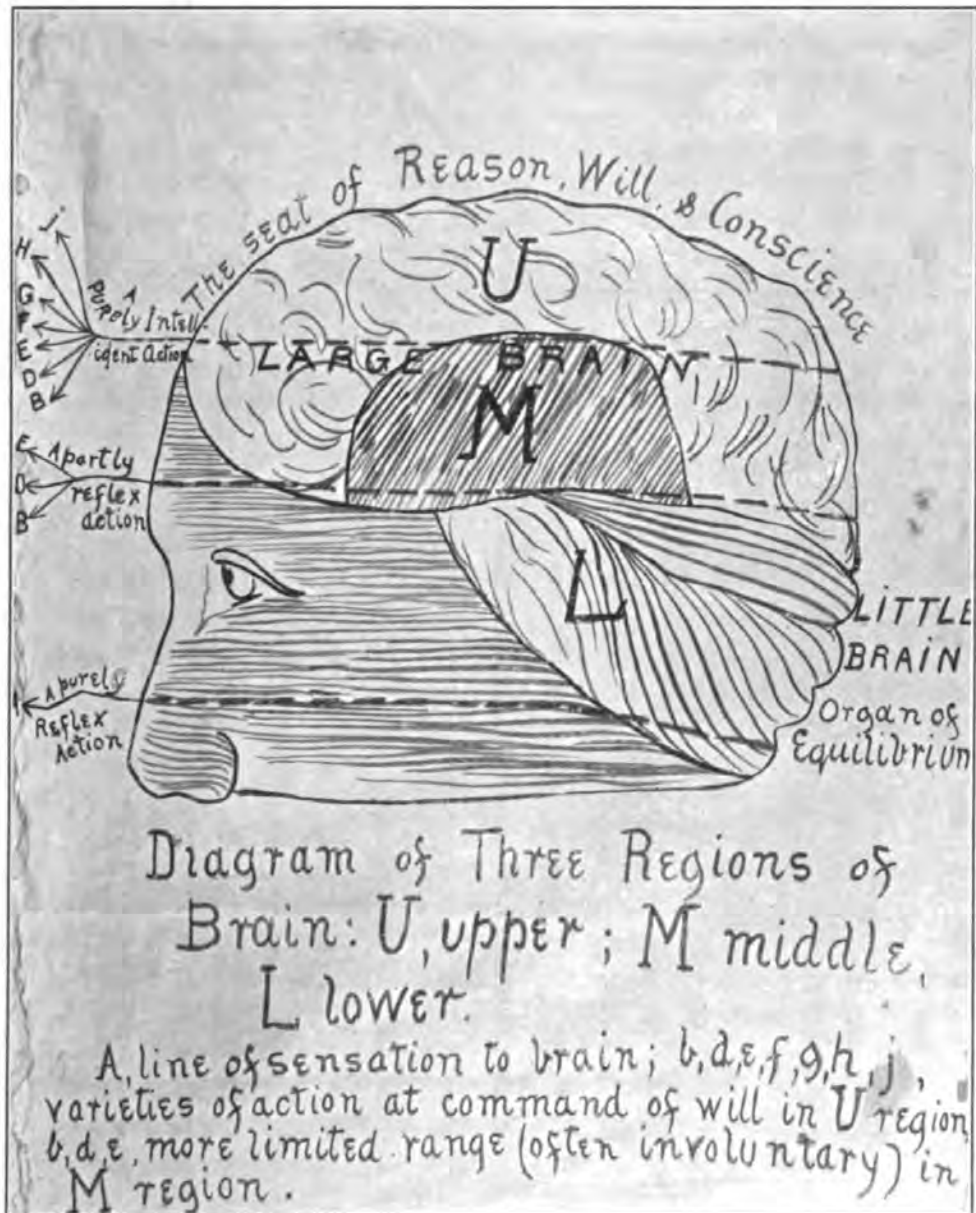 The seat of Reason, Will, & Conscience
U
j
H
G
F
E
D
B
A
Purely Intell-
igent Action
LARGE BRAIN
M
E
D
B
A partly
reflex
action
L
LITTLE
BRAIN
Organ of
Equilibrium
A purely
REFLEX
Action
Diagram of Three Regions of
Brain: U, upper; M middle,
L lower.
A, line of sensation to brain; b, d, e, f, g, h, j,
varieties of action at command of will in U region
b, d, e, more limited range (often involuntary) in
M region.